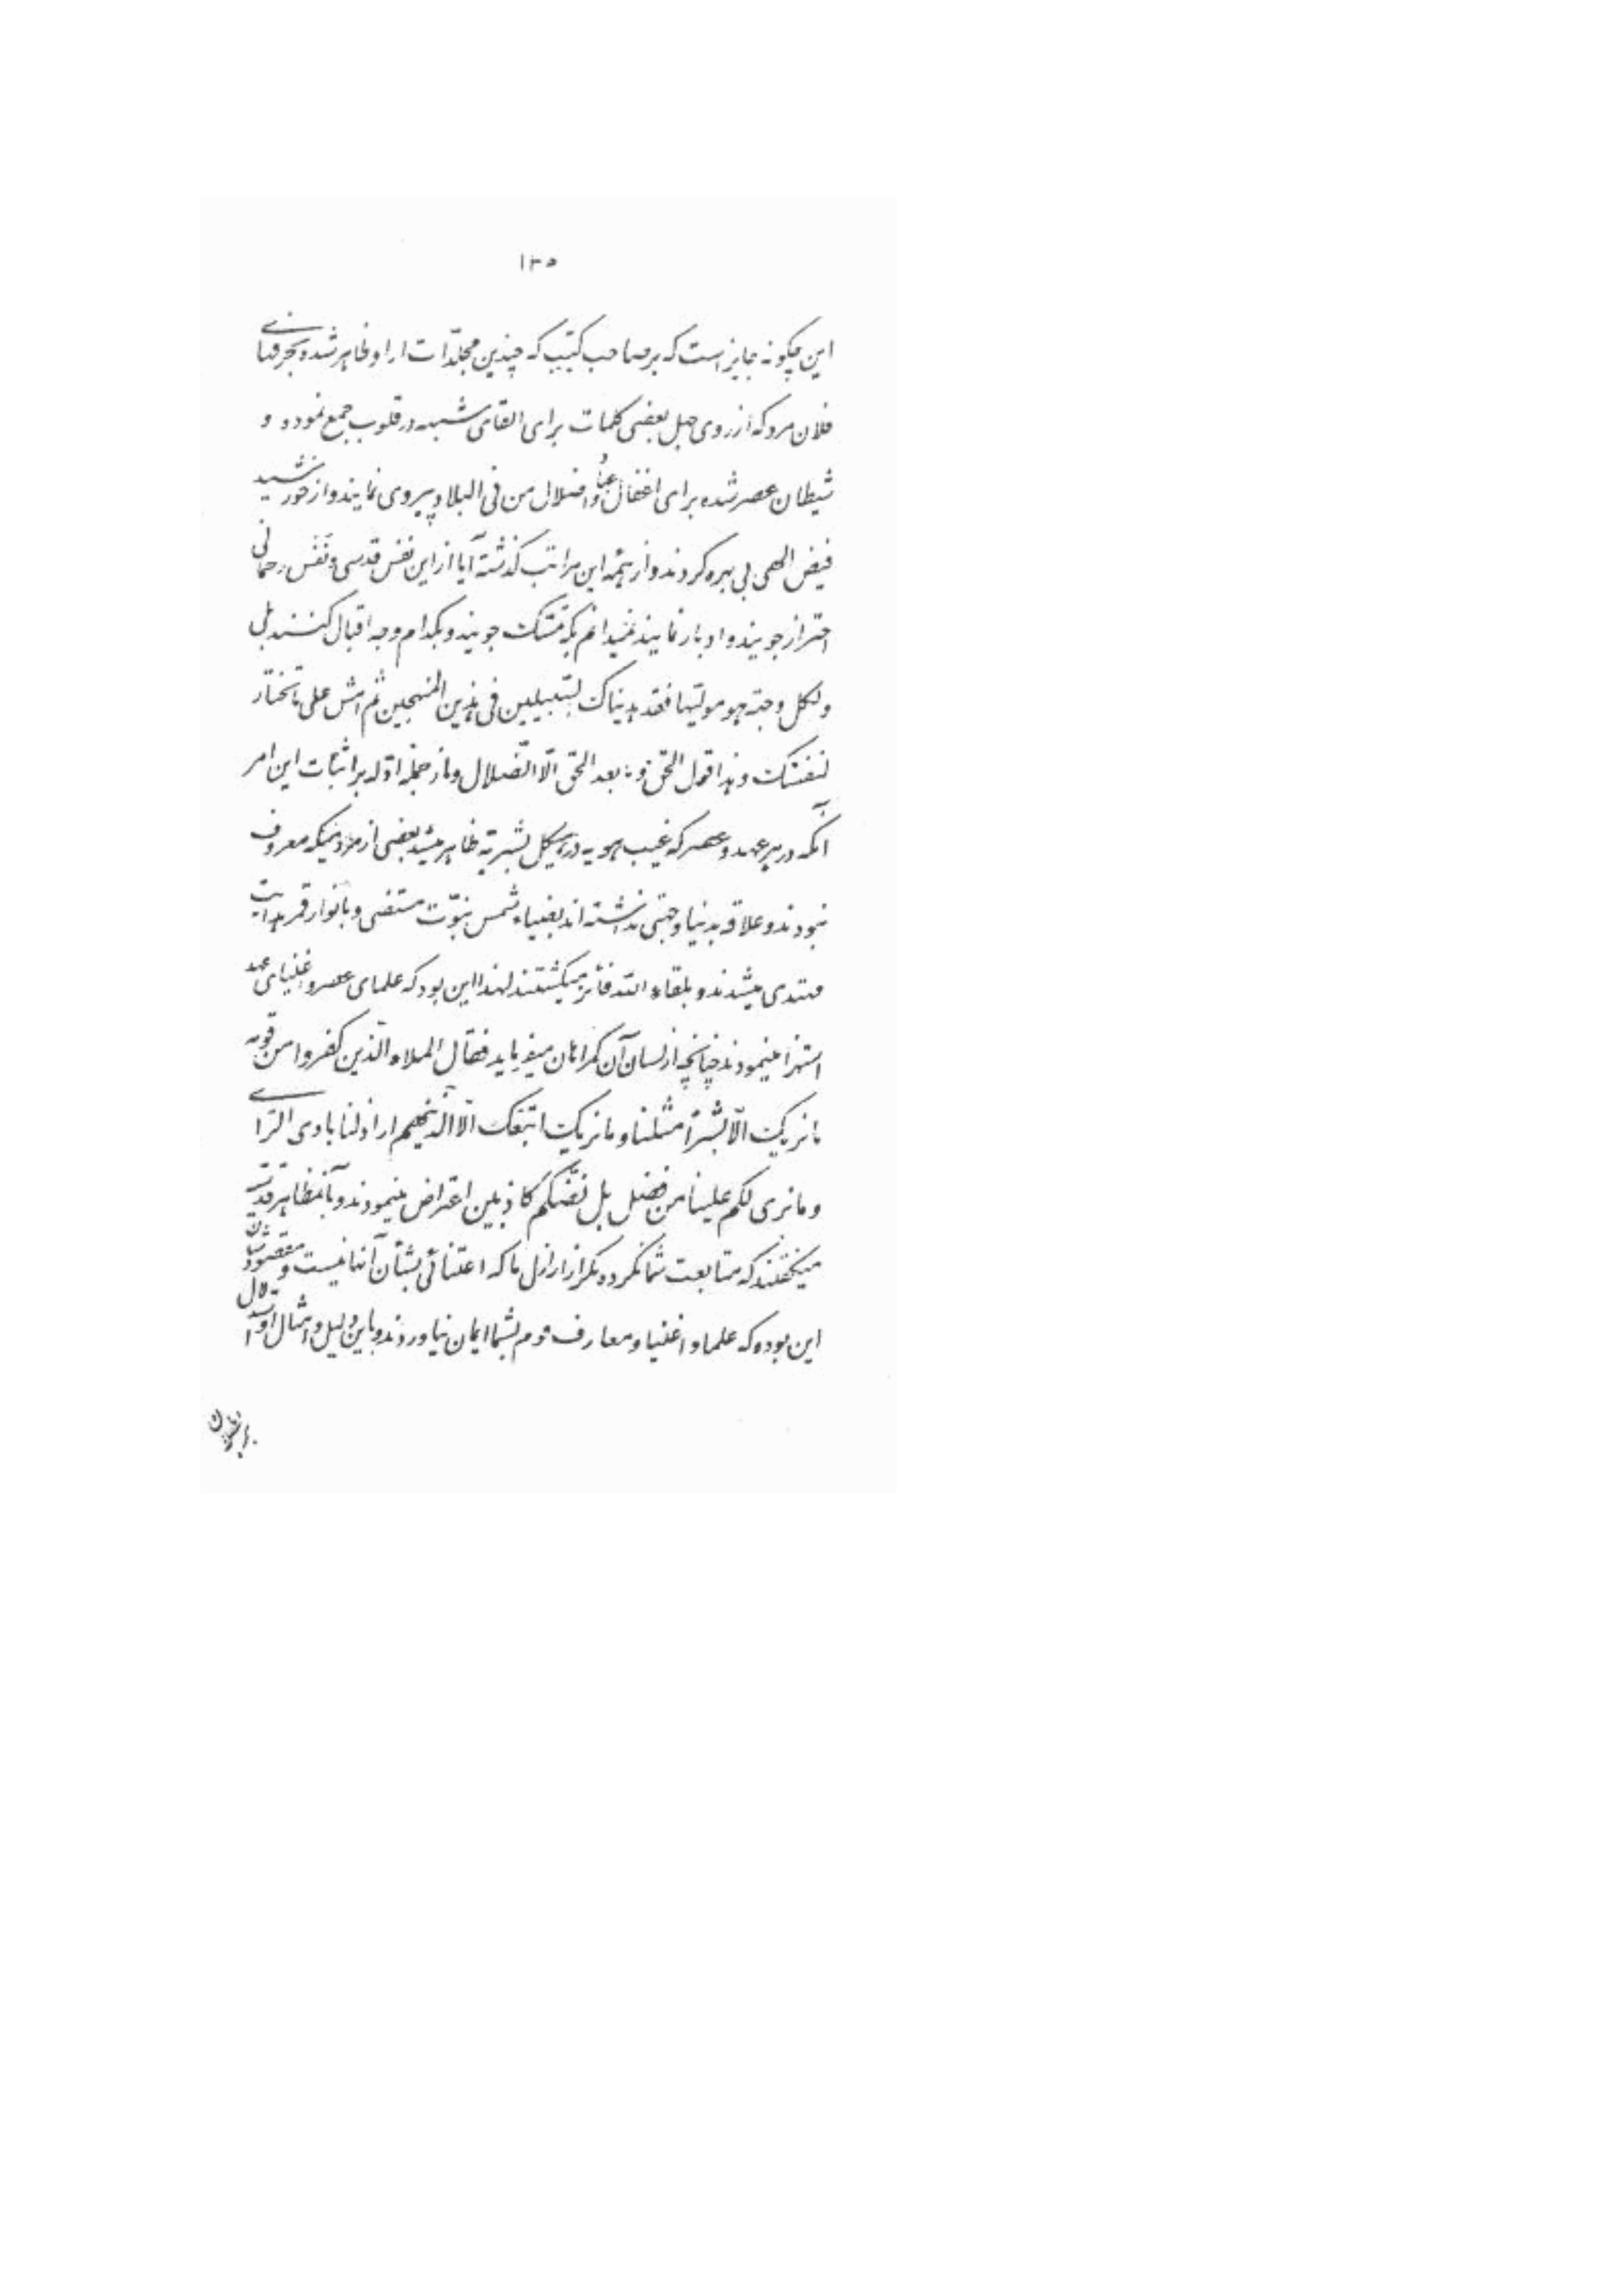 ۱۳۵
این چگونه جایز است که بر صاحب کتب که چندین مجلّدات از او ظاهر شده بحرفهای
فلان مرد که از روی جهل بعضی کلمات برای القای شبهه در قلوب جمع نموده و
شیطان عصر شده برای اغفال عباد و اضلال من فی البلاد پیروی نمایند و از خورشید
فیض الهی بی بهره گردند و از همه این مراتب گذشته آیا از این نفس قدسی و نَفَس رحمانی
احتراز جویند و ادبار نمایند نمیدانم بکه تمسّک جویند و بکدام وجه اقبال کنند بلی
ولکل وجهة هو مولّیها فقد هدیناک السّبیلین فی هذین المنهجین ثم امش علی ما تختار
لنفسک و هذا قول الحق و ما بعد الحق الّا الضّلال و از جمله ادّله بر اثبات این امر
آنکه در هر عهد و عصر که غیب هویه در هیکل بشریّه ظاهر میشد بعضی از مردمیکه معروف
نبودند و علاقه بدنیا و جهتی نداشته‌اند بضیاء شمس نبوّت مستضی و بانوار قمر هدایت
مهتدی میشدند و بلقاء اللّه فائز میگشتند لهذا این بود که علمای عصر و اغنیای عهد
استهزا مینمودند چنانچه از لسان آن گمراهان میفرماید فقال الملاء الّذین کفروا من قومه
ما نریک الّا بشراً مثلنا و ما نریک اتبعک الّا الّذینهم اراذلنا بادی الرّای
و ما نری لکم علینا من فضل بل نظنّکم کاذبین اعتراض مینمودند و بآنمظاهر قدسیّه
میگفتند که متابعت شما نکرده مگر اراذل ما که اعتنائی بشأن آنها نیست و مقصودشان
این بوده که علما و اغنیا و معارف قوم بشما ایمان نیاوردند و باین دلیل و امثال او استدلال